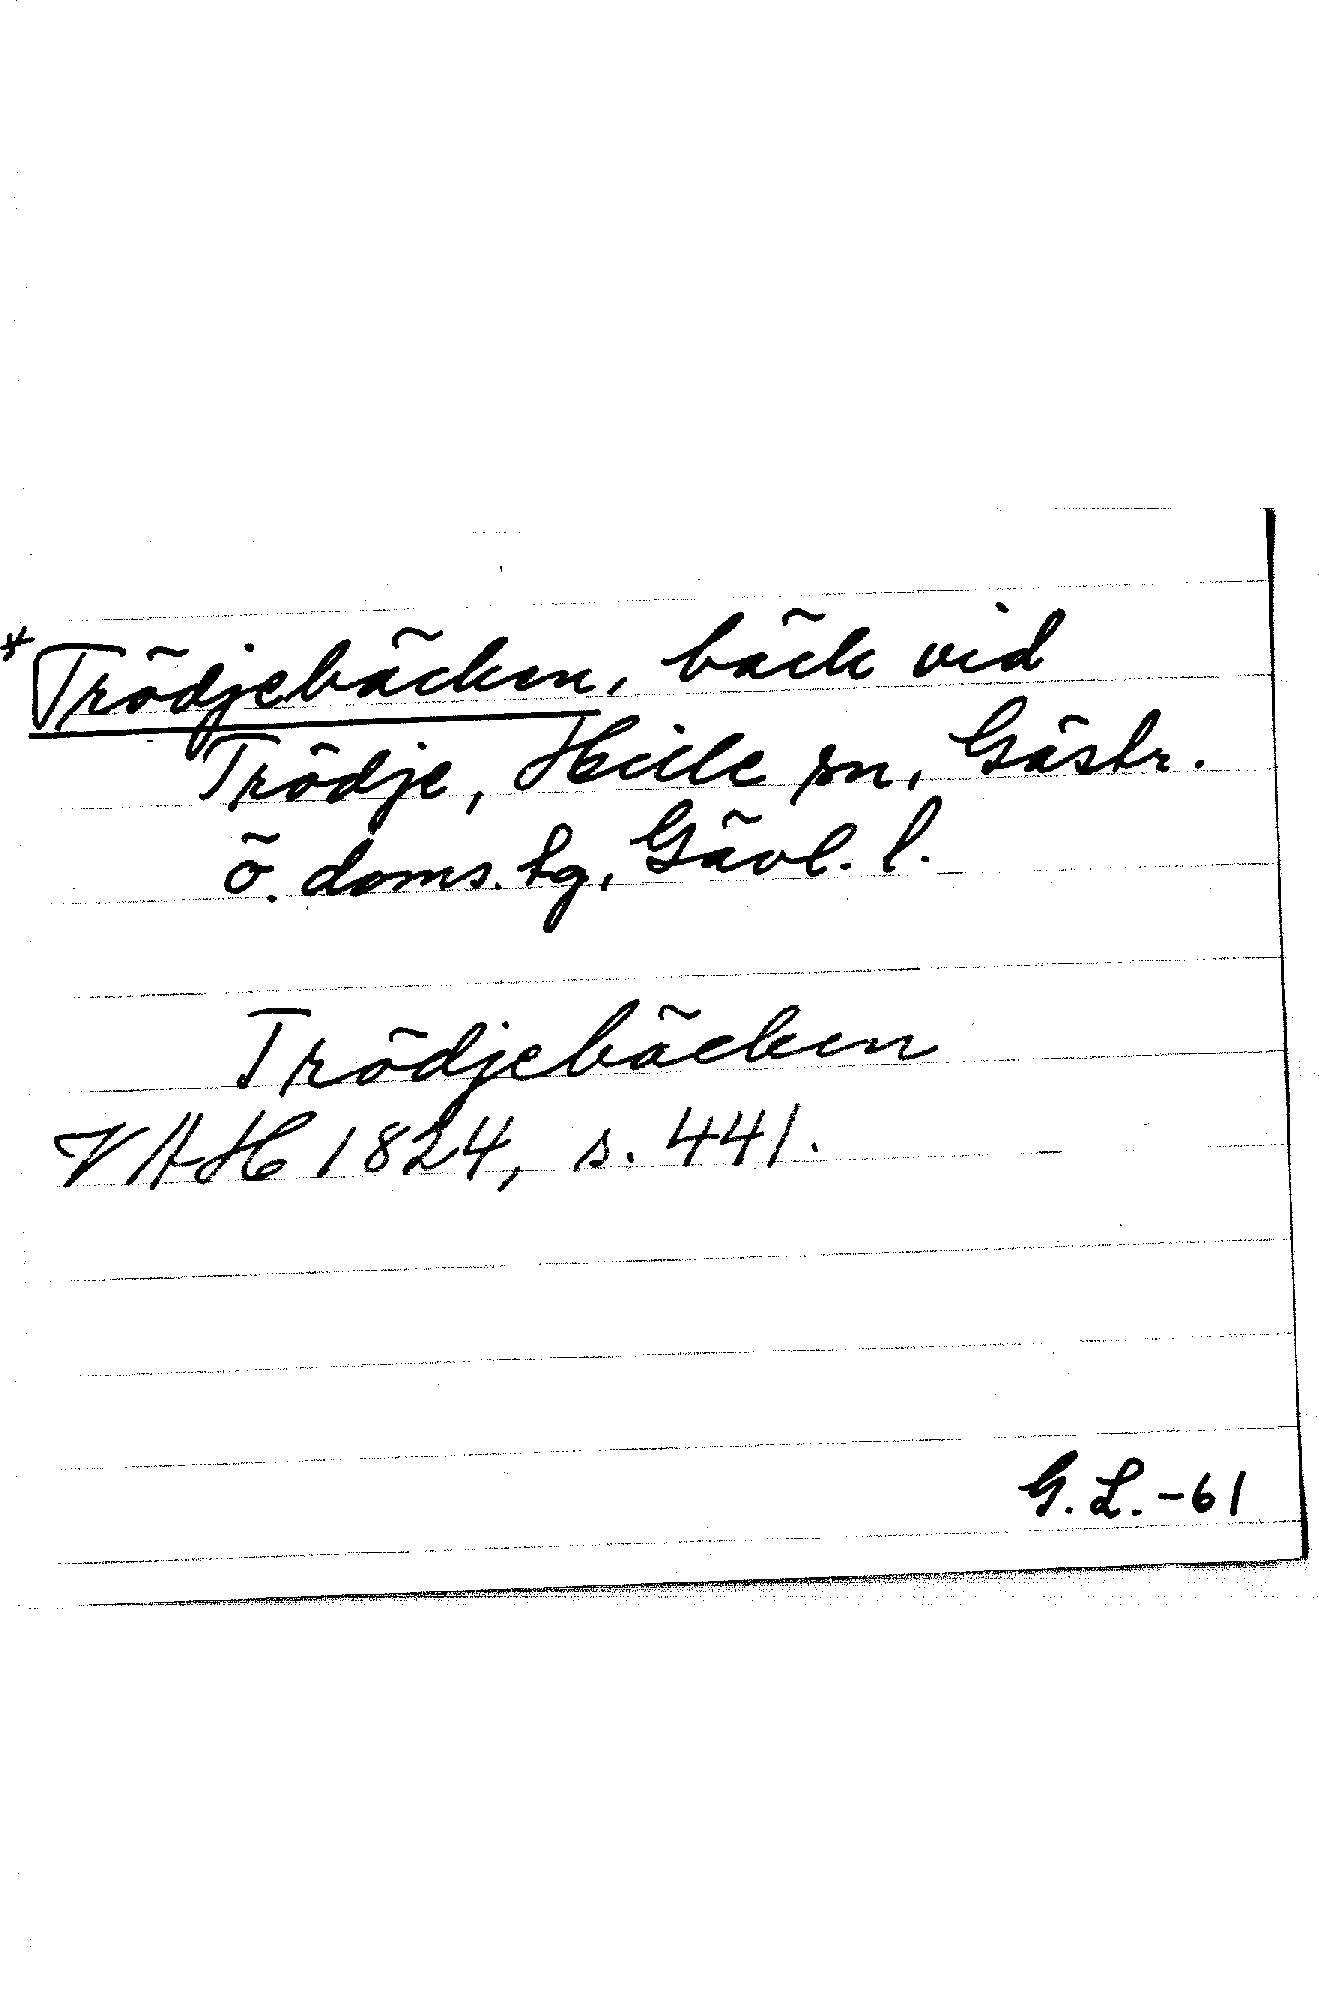 * Trödjebäcken, bäck vid
Trödje, Hille sn, Gästr.
ö. doms. hg, Gävl. l.
Trödjebäcken
VAH 1824, s. 441.
G. L. -61